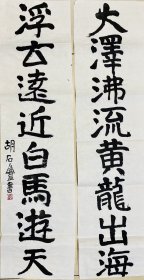 大澤沸流黄龍出海
浮云遠近白馬遊天
胡石書